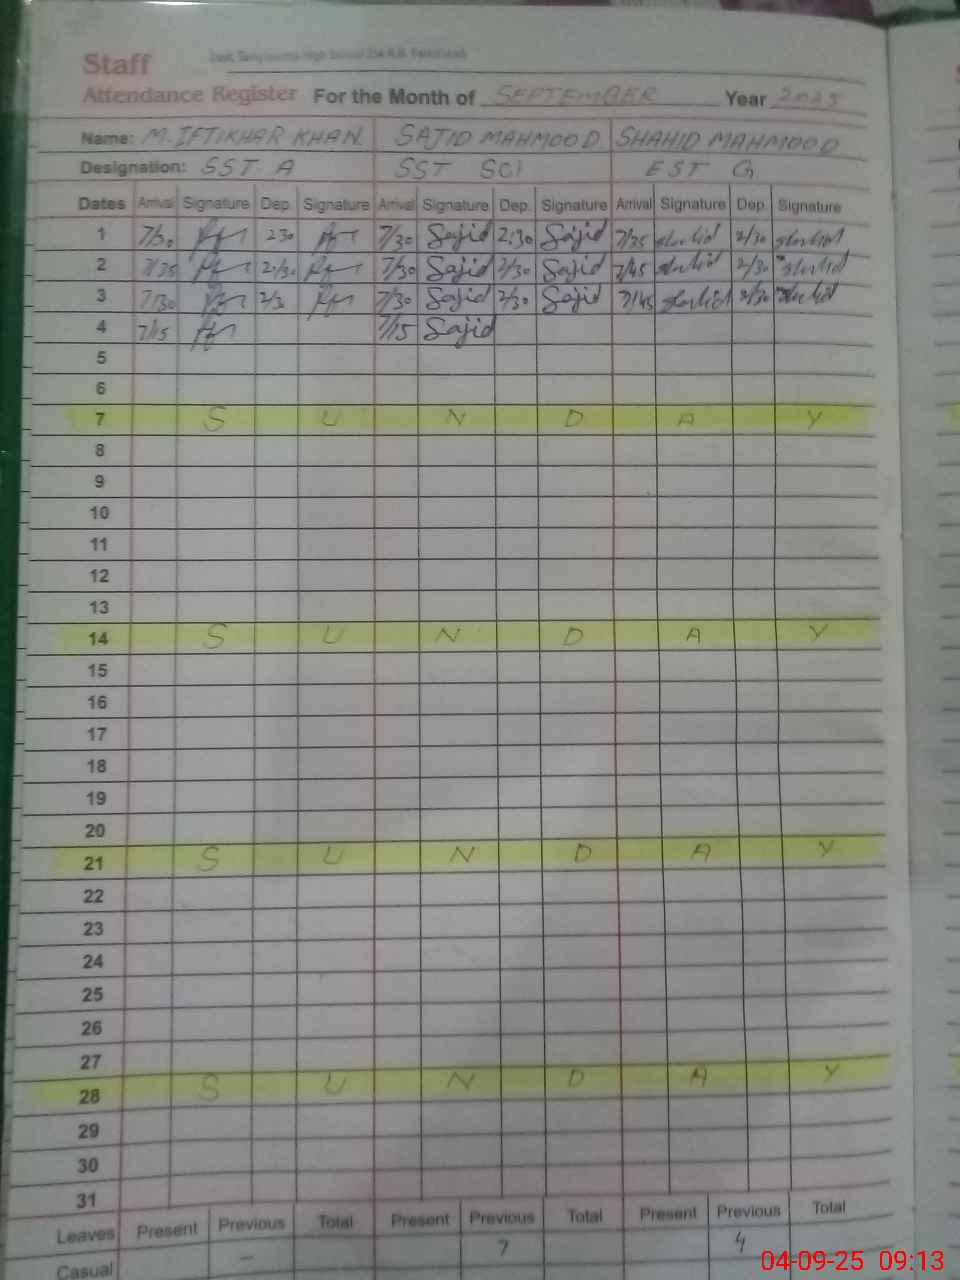 Staff
Attendance Register For the Month of SEPTEMBER Year 2025
Name: M. IFTIKHAR KHAN SAJID MAHMOOD SHAHID MAHMOOD
Designation: SST A SST SCI EST G
Dates Arrival Signature Dep. Signature Arrival Signature Dep. Signature Arrival Signature Dep. Signature
1 7/30 230 7/30 Sajid 2:30 Sajid 7/35 Shahid 2/30 Shahid
2 7/35 2/30 7/30 Sajid 2/30 Sajid 7/45 Shahid 2/30 Shahid
3 7/30 2/3 7/30 Sajid 2/30 Sajid 7/45 Shahid 2/30 Shahid
4 7/15 7/15 Sajid
5
6
7 S U N D A Y
8
9
10
11
12
13
14 S U N D A Y
15
16
17
18
19
20
21 S U N D A Y
22
23
24
25
26
27
28 S U N D A Y
29
30
31
Leaves Present Previous Total Present Previous Total Present Previous Total
Casual — 7 4
04-09-25 09:13